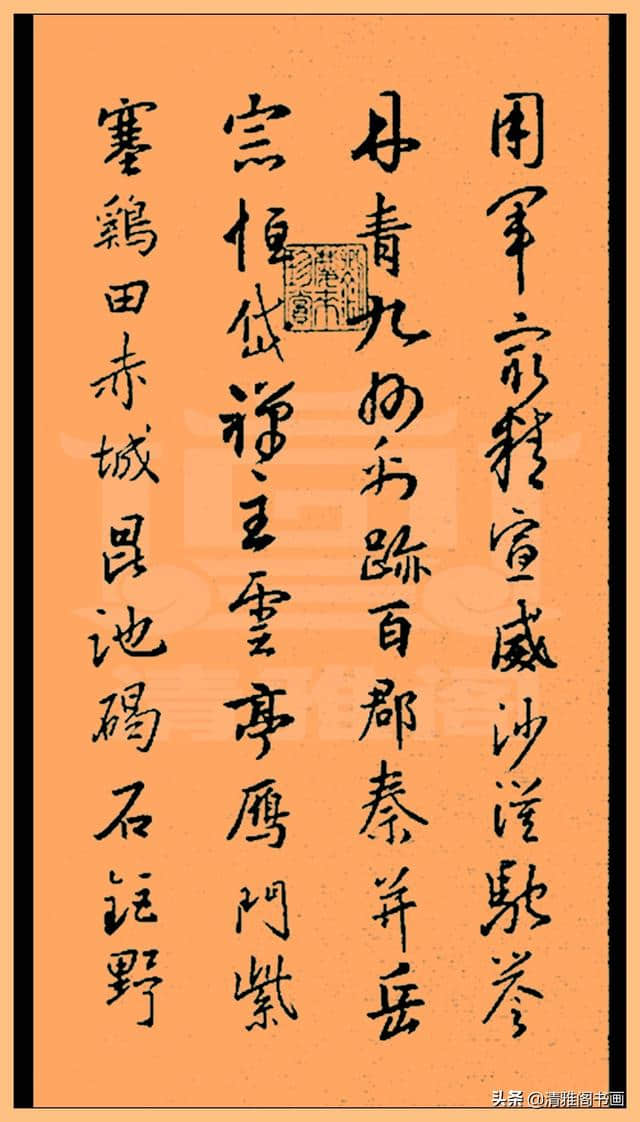 用軍最精宣威沙漠馳譽
丹青九州禹跡百郡秦并岳
宗恒岱禪主雲亭鴈門紫
塞鷄田赤城昆池碣石鉅野
清雅阁
头条 @清雅阁书画